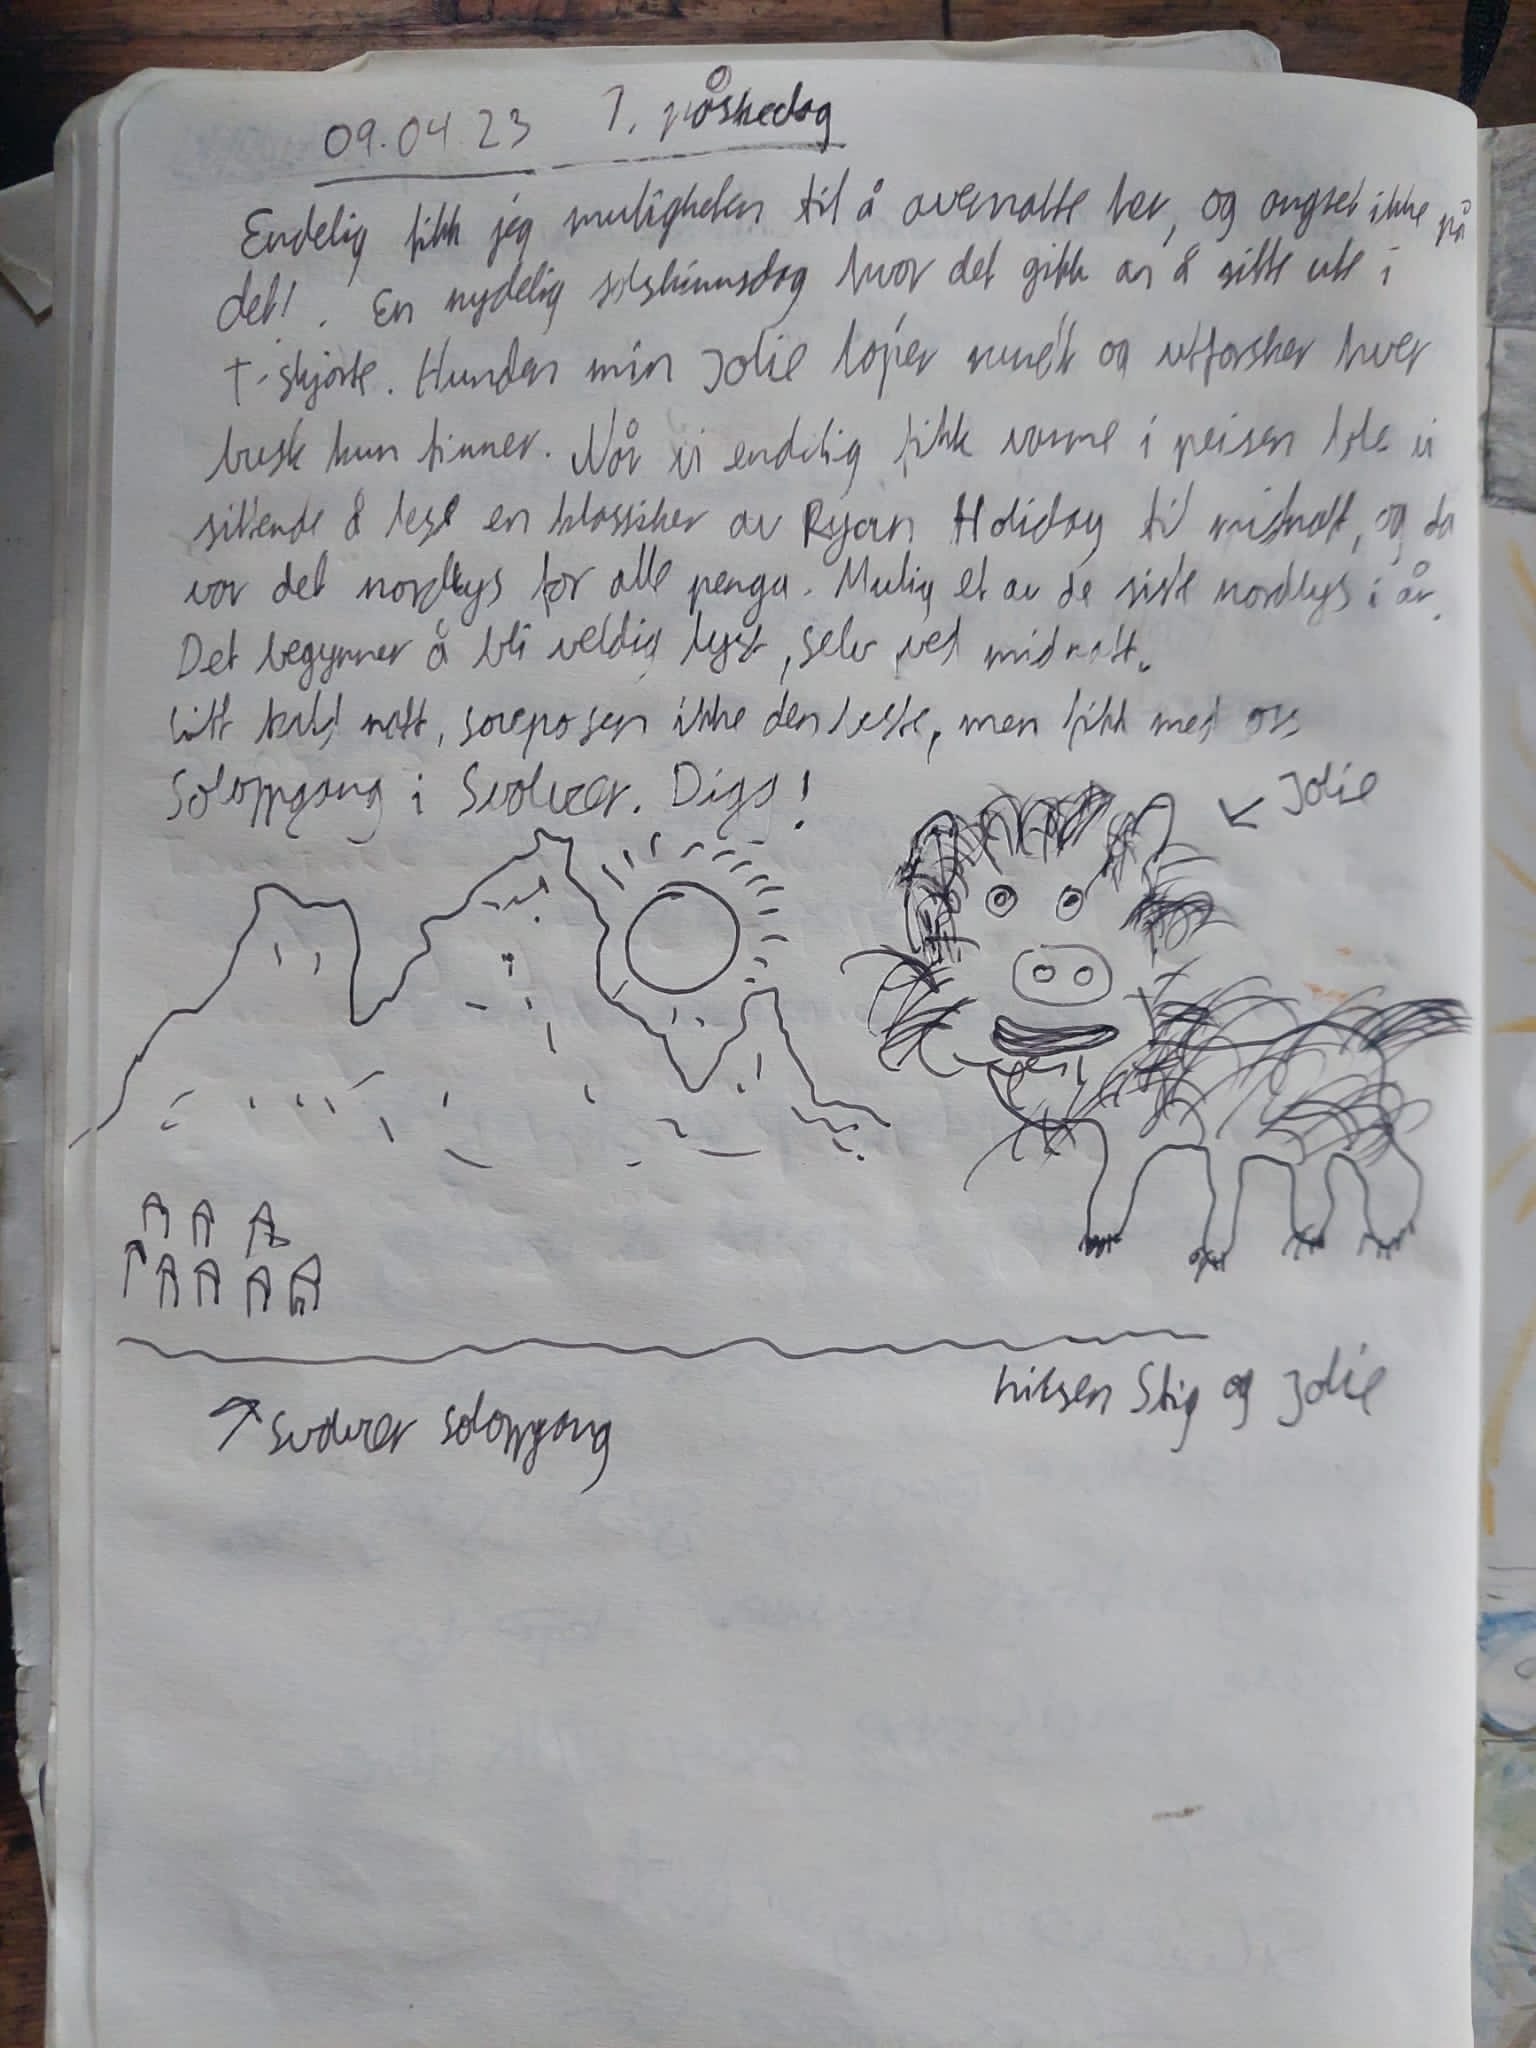 09.04.23 1. påskedag
Endelig fikk jeg muligheten til å overnatte her, og angret ikke på
det! . En nydelig solskinnsdag hvor det gikk an å sitte ute i
T-skjorte. Hunden min Jolie løper rundt og utforsker hver
busk hun finner. Når vi endelig fikk varme i peisen ble vi
sittende å lese en klassiker av Ryan Holiday til midnatt, og da
var det nordlys for alle penga. Mulig et av de siste nordlys i år.
Det begynner å bli veldig lyst, selv ved midnatt.
Litt kald natt, soveposen ikke den beste, men fikk med oss
Soloppgang i Svolvær. Digg!
Jolie
Hilsen Stig og Jolie
Svolvær soloppgang